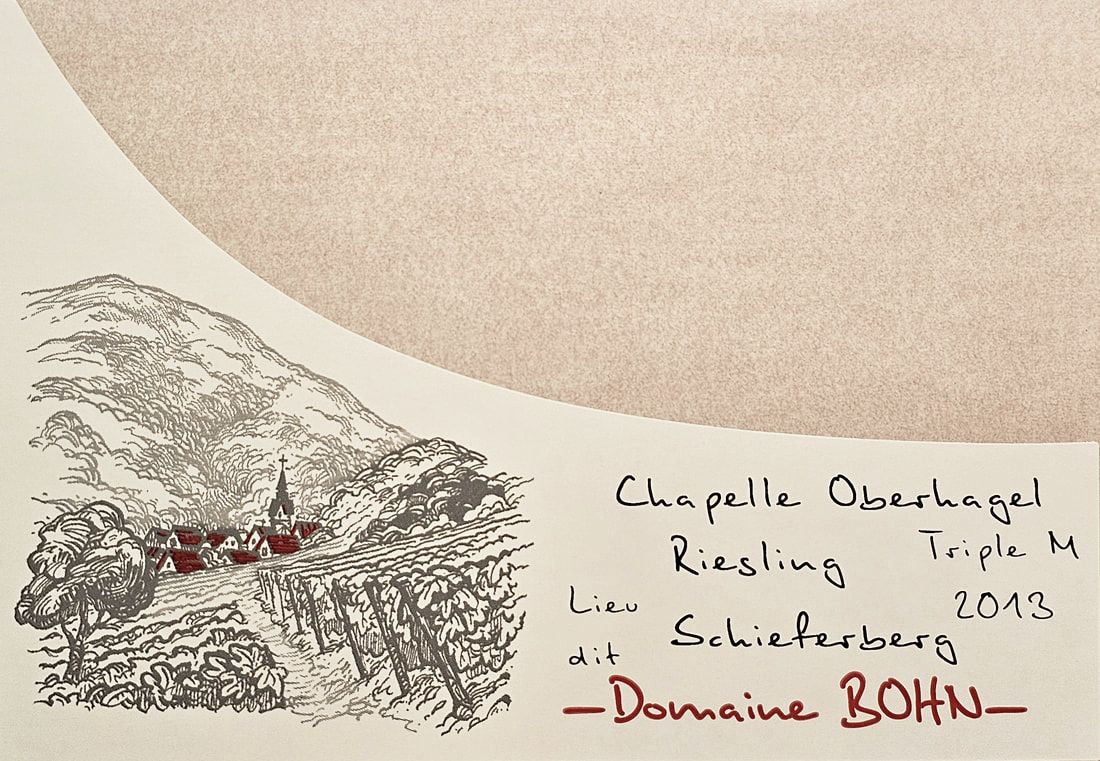 Chapelle Oberhagel
Riesling Triple M
Lieu dit Schieferberg 2013
—Domaine BOHN—